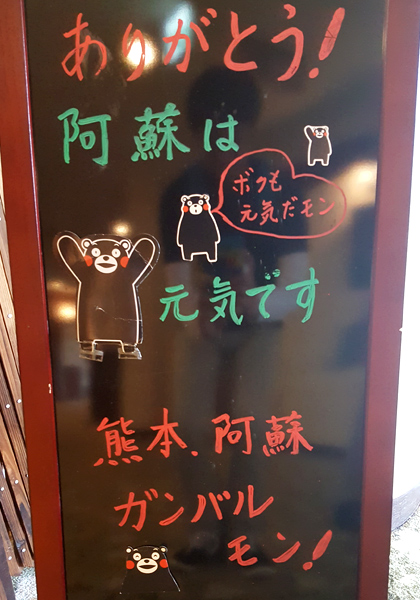 ありがとう！
阿蘇は
ボクも
元気だモン
元気です
熊本、阿蘇
ガンバル
モン！